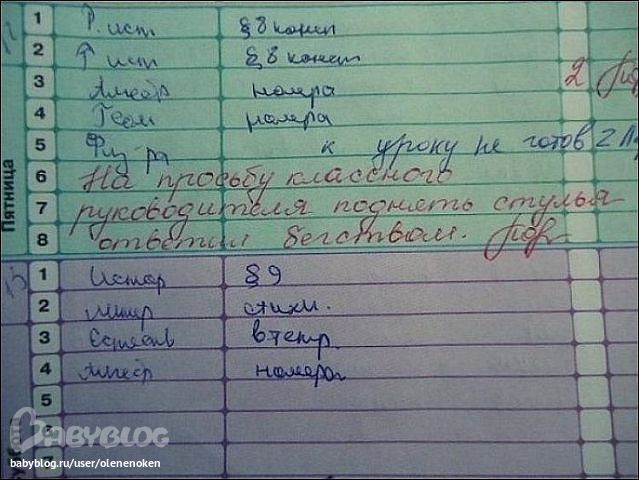 1 Р. ист §8 конст
2 Р ист §8 конст
3 Алгебр номера 2
4 Геом номера
5 Физ-ра к уроку не готов 2
Пятница
6 На просьбу классного
7 руководителя поднять стулья
8 ответил бегством.
1 Истор §9
2 Литер стихи.
3 Естеств в тетр
4 Алгебр номера
5
BABYBLOG
babyblog.ru/user/olenenoken